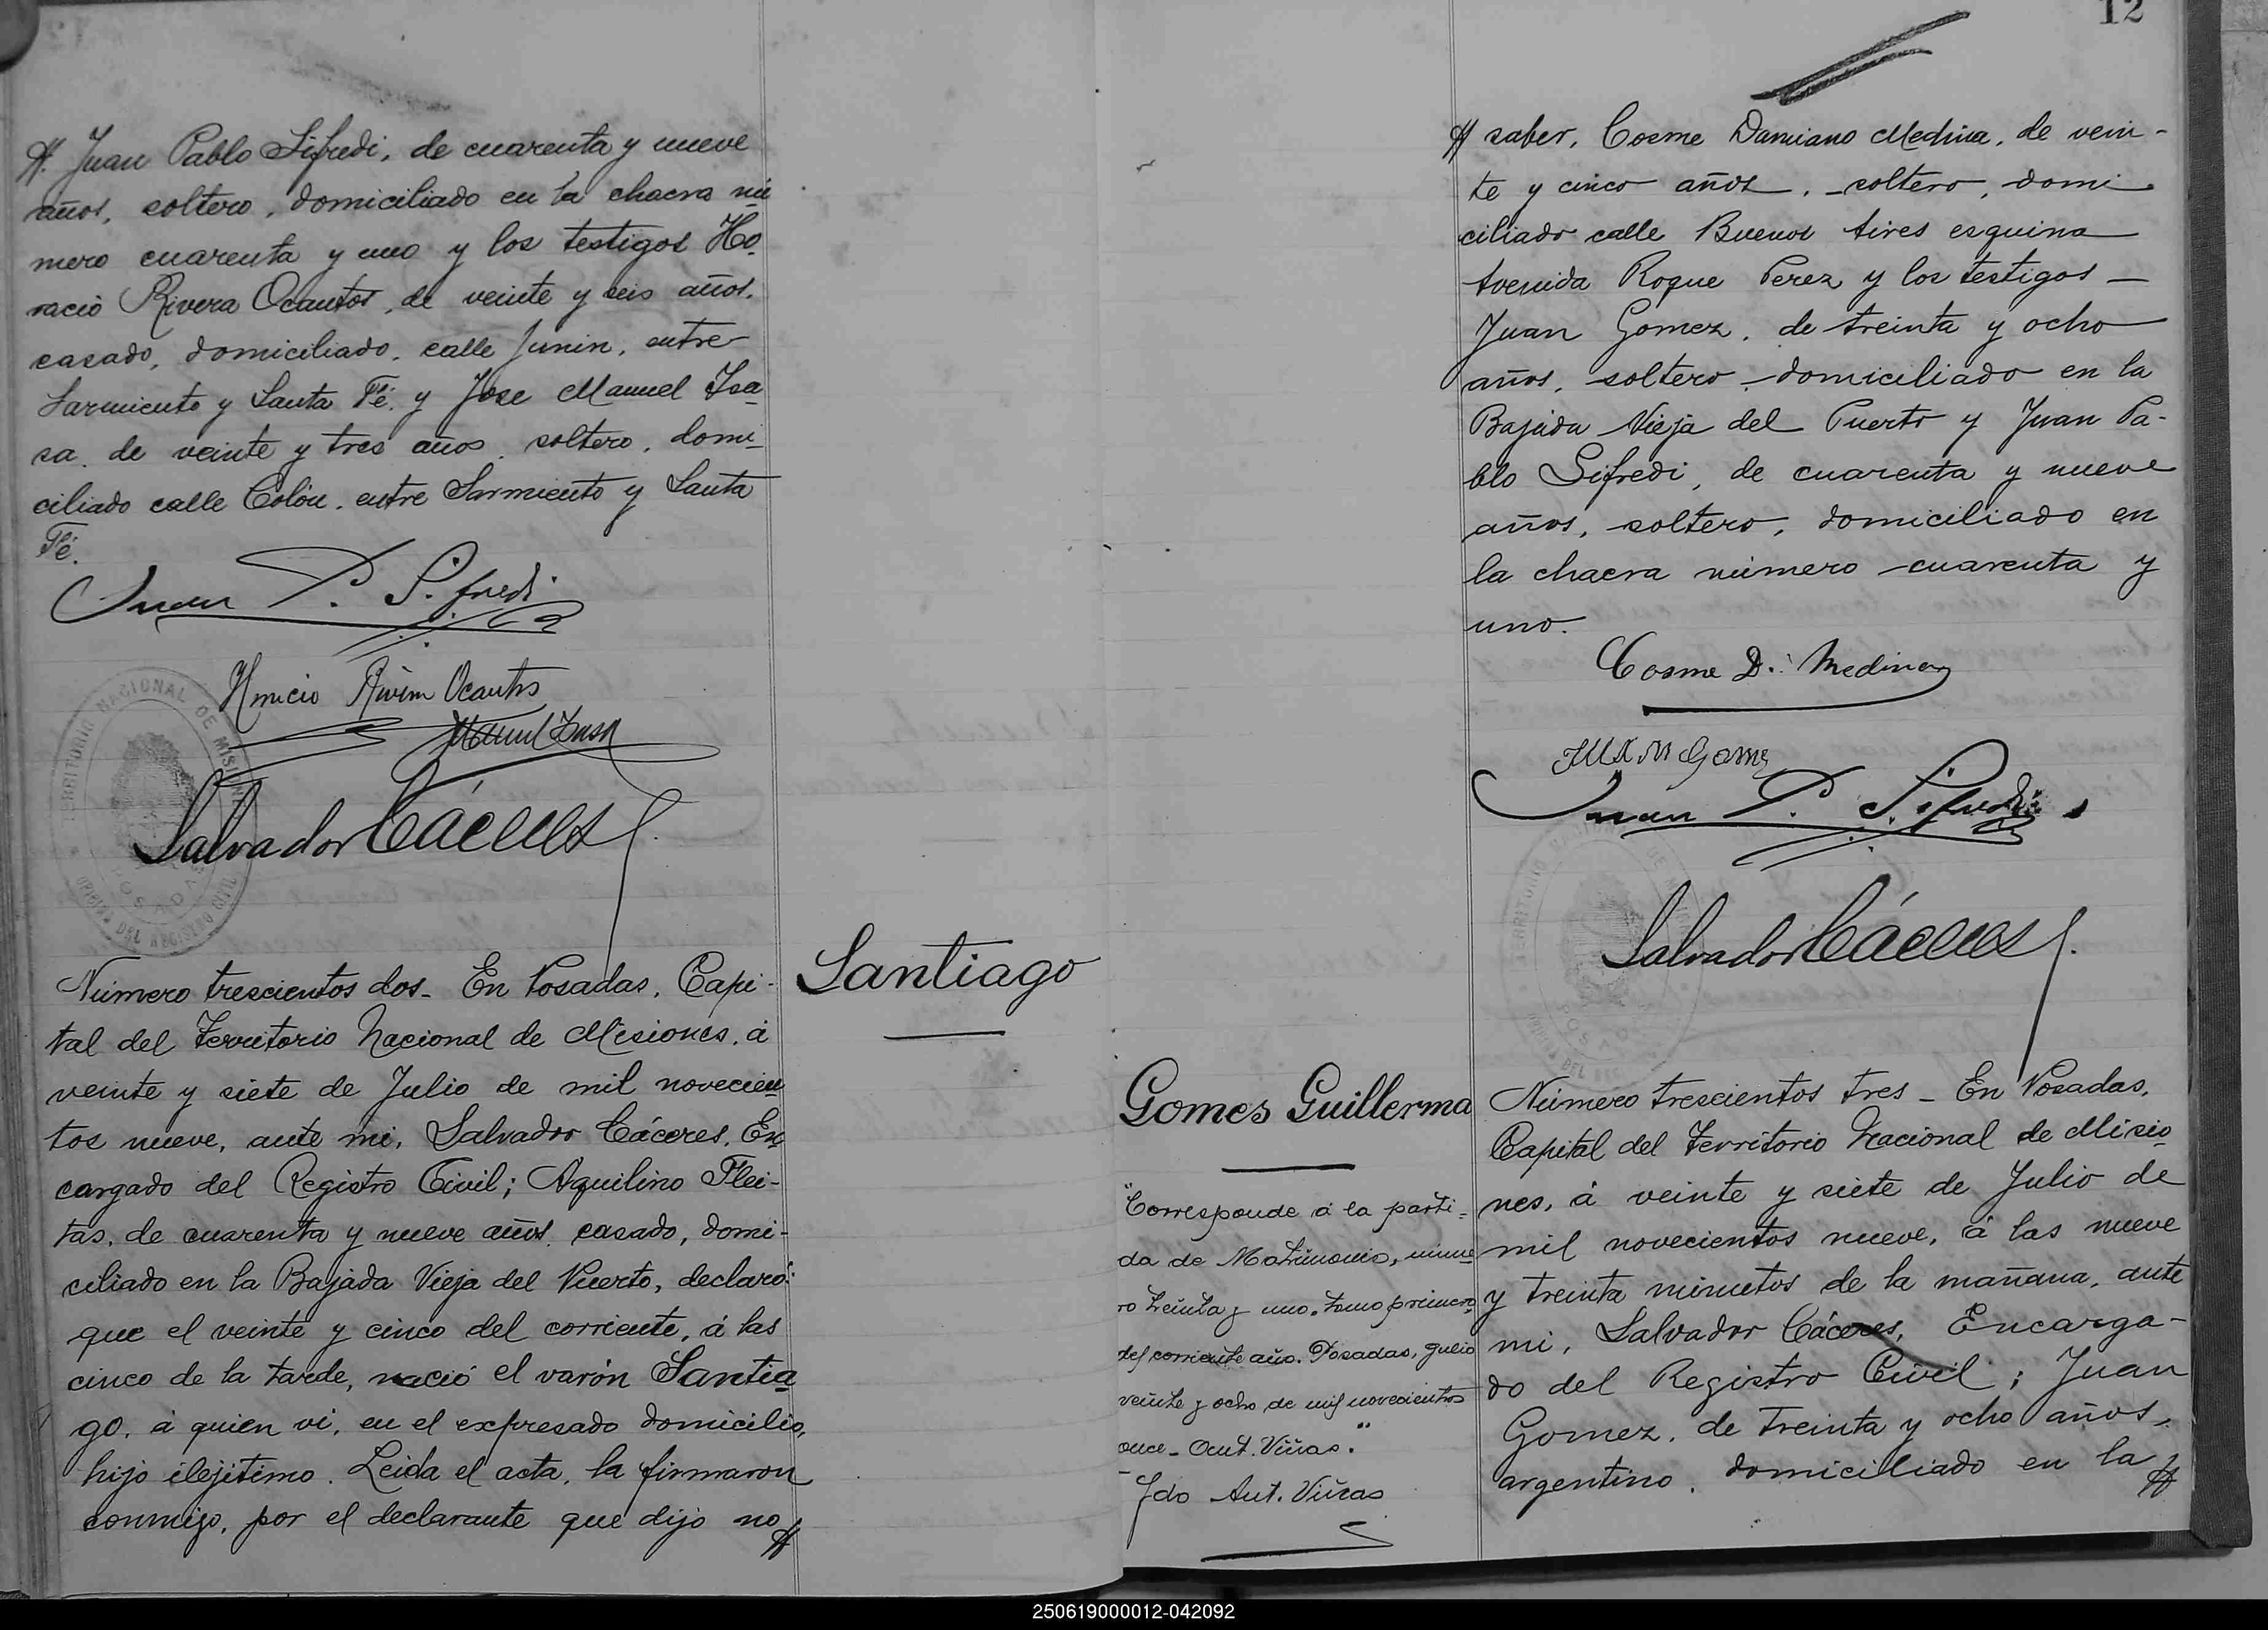 Juan Pablo Sifredi, de cuarenta y nueve
años, soltero, domiciliado en la chacra nú
mero cuarenta y uno y los testigos Ho
racio Rivera Ocantos, de veinte y seis años,
casado, domiciliado, calle Junin, entre
Sarmiento y Santa Fé, y Jose Manuel Isa
sa, de veinte y tres años, soltero, domi-
ciliado calle Colón, entre Sarmiento y Santa
Fé.
Juan P. Sifredi
Horacio Rivera Ocantos
Salvador Cáceres
Número trescientos dos- En Posadas, Capi-
tal del Territorio Nacional de Misiones, á
veinte y siete de Julio de mil novecien
tos nueve, ante mi, Salvador Cáceres, En
cargado del Registro Civil; Aquilino Flei-
tas, de cuarenta y nueve años, casado, domi-
ciliado en la Bajada Vieja del Puerto, declaró:
que el veinte y cinco del corriente, á las
cinco de la tarde, nació el varón Santia
go, á quien vi, en el expresado domicilio,
hijo ilejitimo. Leida el acta, la firmaron
conmigo, por el declarante que dijo no
Santiago
12
saber, Cosme Damiano Medina, de vein-
te y cinco años, soltero, domi
ciliado calle Buenos Aires esquina
Avenida Roque Perez y los testigos
Juan Gomez, de treinta y ocho
años, soltero, domiciliado en la
Bajada Vieja del Puerto y Juan Pa-
blo Sifredi, de cuarenta y nueve
años, soltero, domiciliado en
la chacra número cuarenta y
uno.
Cosme D. Medina
JUAN Gomez
Juan P. Sifredi
Salvador Cáceres
Gomes Guillerma
"Corresponde á la parti=
da de Matrimonio, núme
ro treinta y uno, tomo primero
del corriente año. Posadas, Julio
veinte y ocho de mil novecientos
once- Ant. Viñas."
Fdo Ant. Viñas
Número trescientos tres - En Posadas,
Capital del Territorio Nacional de Misio
nes, á veinte y siete de Julio de
mil novecientos nueve, á las nueve
y treinta minutos de la mañana, ante
mi, Salvador Cáceres, Encarga-
do del Registro Civil; Juan
Gomez, de treinta y ocho años,
argentino, domiciliado en la
250619000012-042092